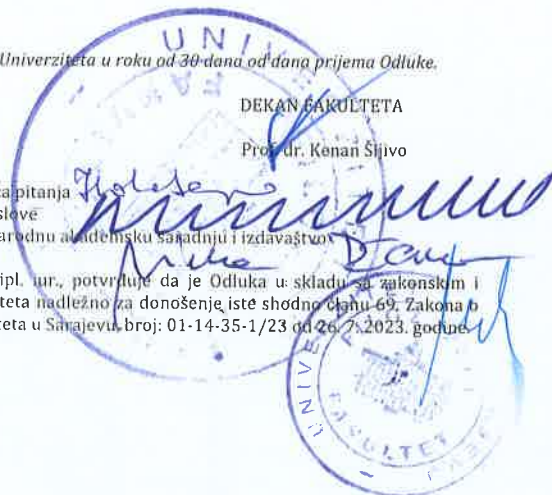 Univerziteta u roku od 30 dana od dana prijema Odluke.
DEKAN FAKULTETA
Prof. dr. Kenan Šljivo
pitanja
arodnu akademsku saradnju i izdavaštvo
ipl. iur., potvrđuje da je Odluka u skladu sa zakonskim i
teta nadležno za donošenje iste shodno članu 69. Zakona o
teta u Sarajevu, broj: 01-14-35-1/23 od 26. 7. 2023. godine.
UNIVE
UNIVE
FAKULTET